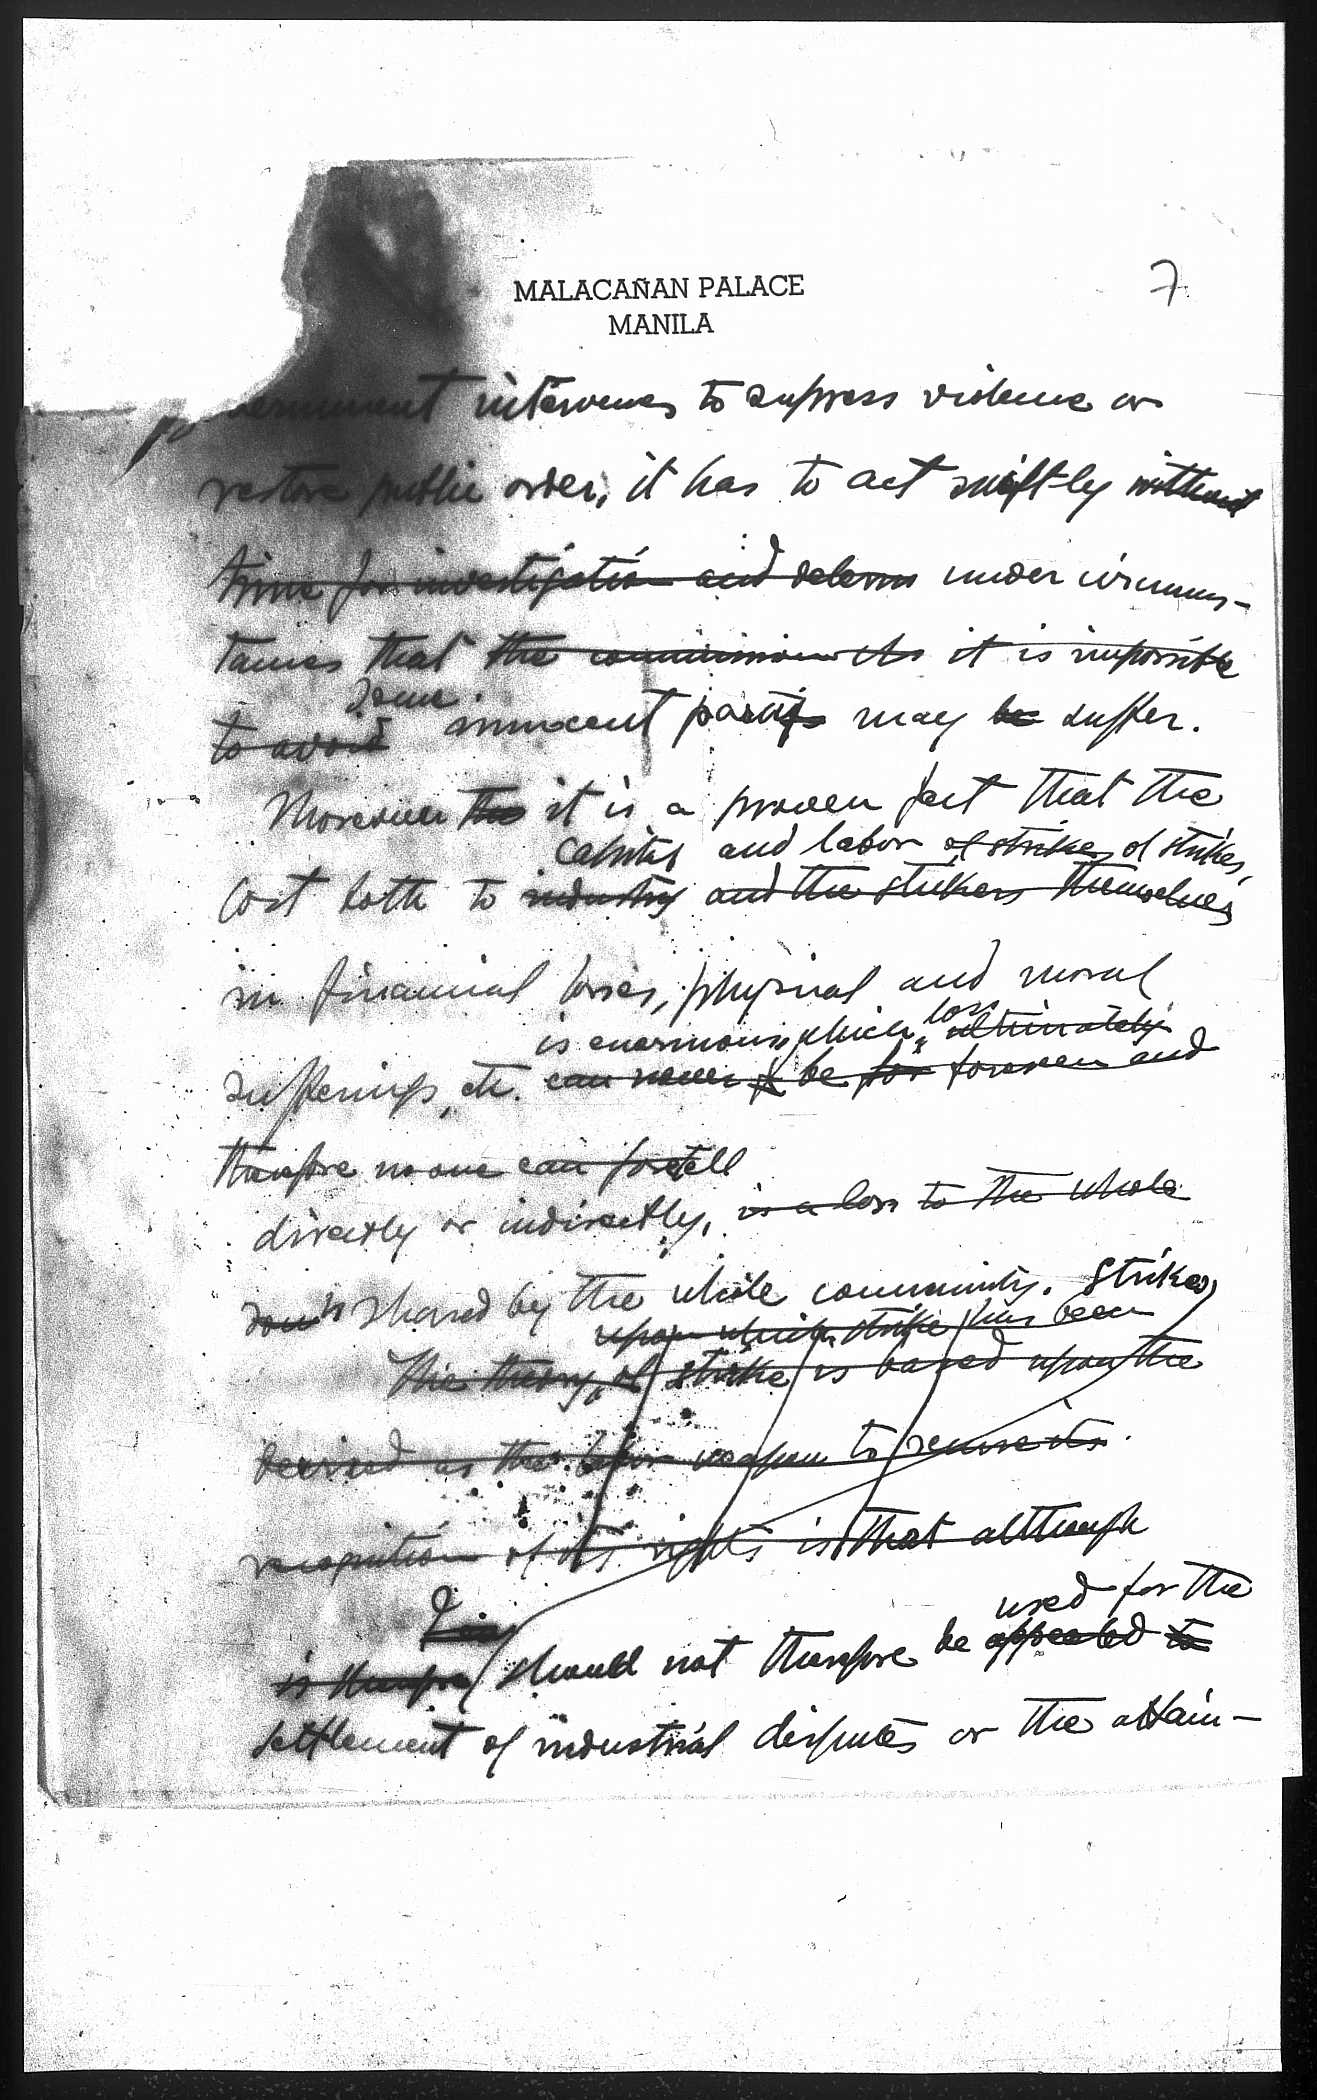 MALACAÑAN PALACE
MANILA
7
government intervenes to supress violence or
restore public order, it has to act swiftly without
time for investigation and under circums-
tances that the it is impossible
some
to avoid innocent parties may be suffer.
Moreover the it is a proven fact that the
capital and labor of strikes of strikes,
cost both to industry and the strikers themselves
in financial losses, physical and moral
is enormous which loss ultimately
sufferings, etc. can never be for forever and
therefore no one can foretell
directly or indirectly, is a loss to the whole
is shared by the whole community. Strikes
upon which strike has been
The theory of strike is based upon the
devised as the labor weapon to secure its
recognition of its rights is that although
used for the
is therefore should not therefore be appealed to
settlement of industrial disputes or the attain-